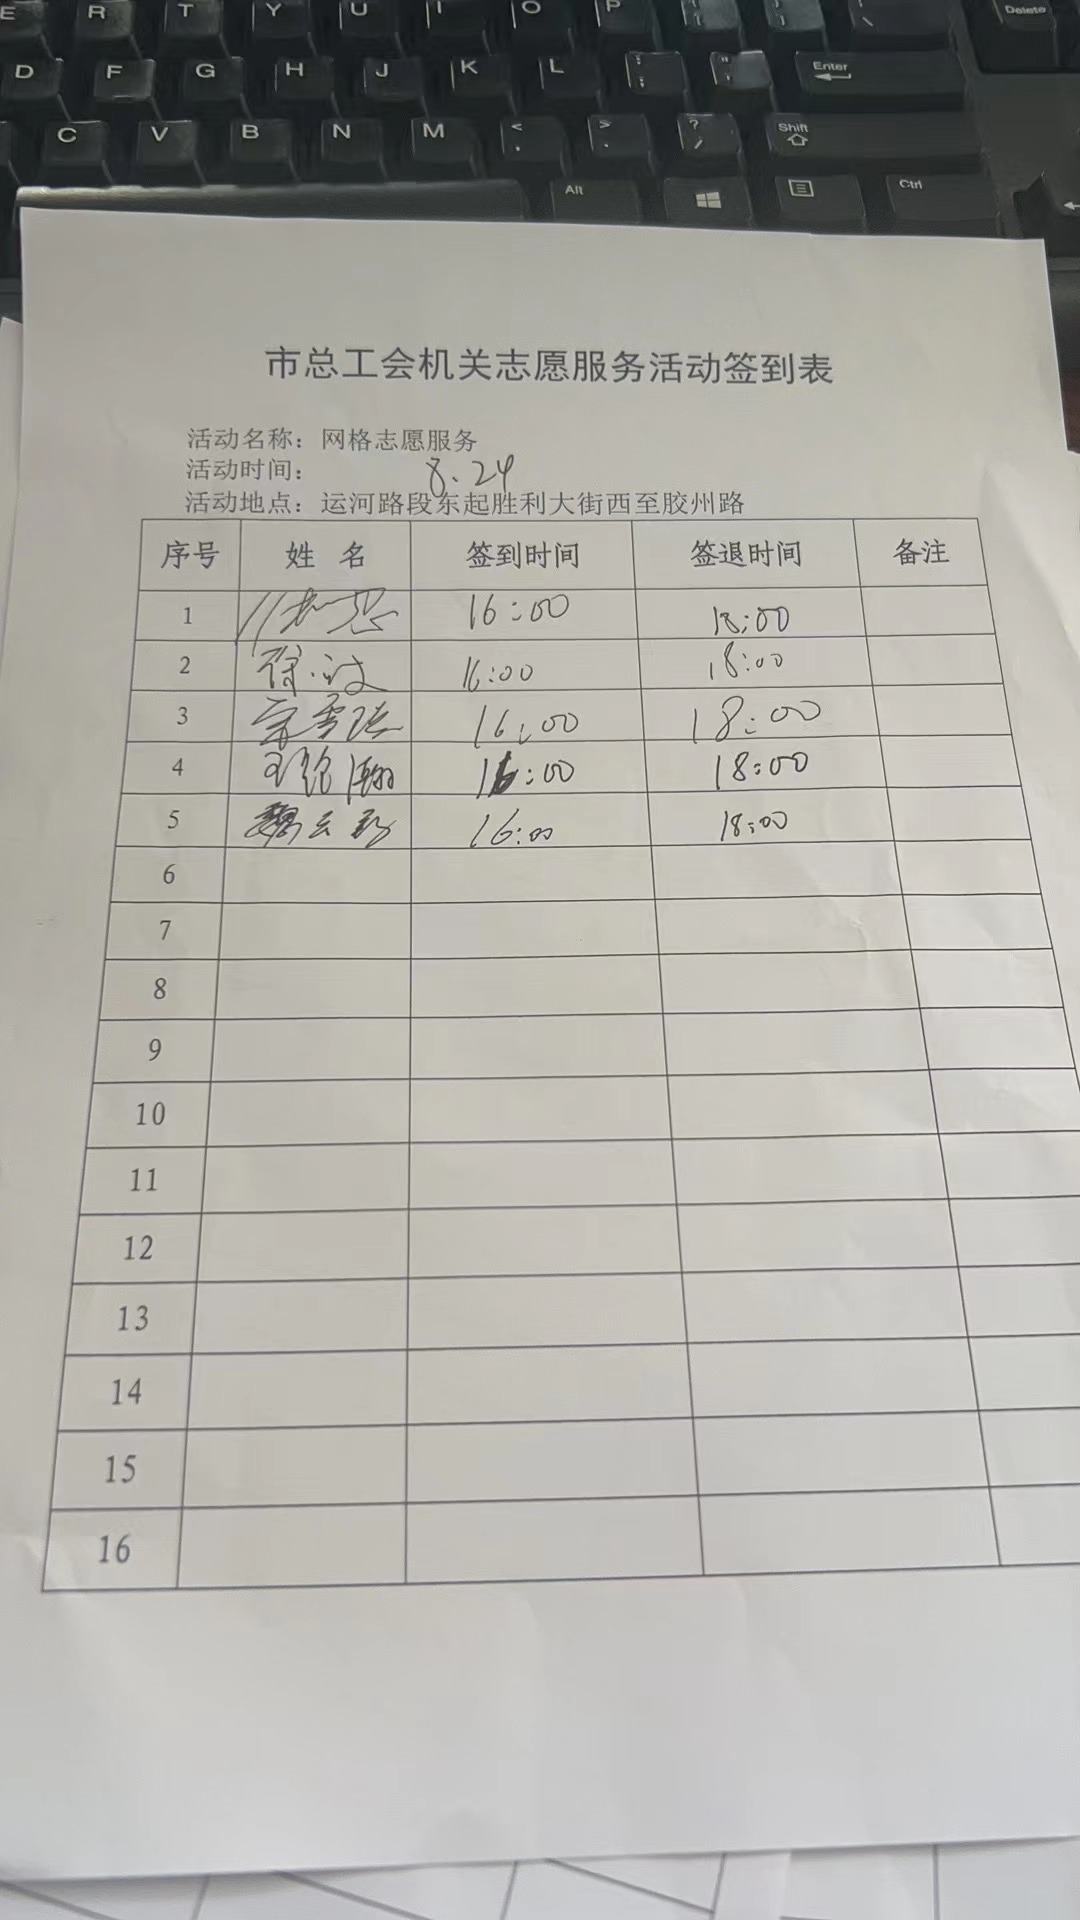 E R T Y U I O P Delete
D F G H J K L : ; " ' Enter
C V B N M < , > . ? / Shift
Alt Ctrl
市总工会机关志愿服务活动签到表
活动名称：网格志愿服务
活动时间： 8.24
活动地点：运河路段东起胜利大街西至胶州路
序号 姓 名 签到时间 签退时间 备注
1 16:00 18:00
2 徐波 16:00 18:00
3 16:00 18:00
4 16:00 18:00
5 魏云 16:00 18:00
6
7
8
9
10
11
12
13
14
15
16